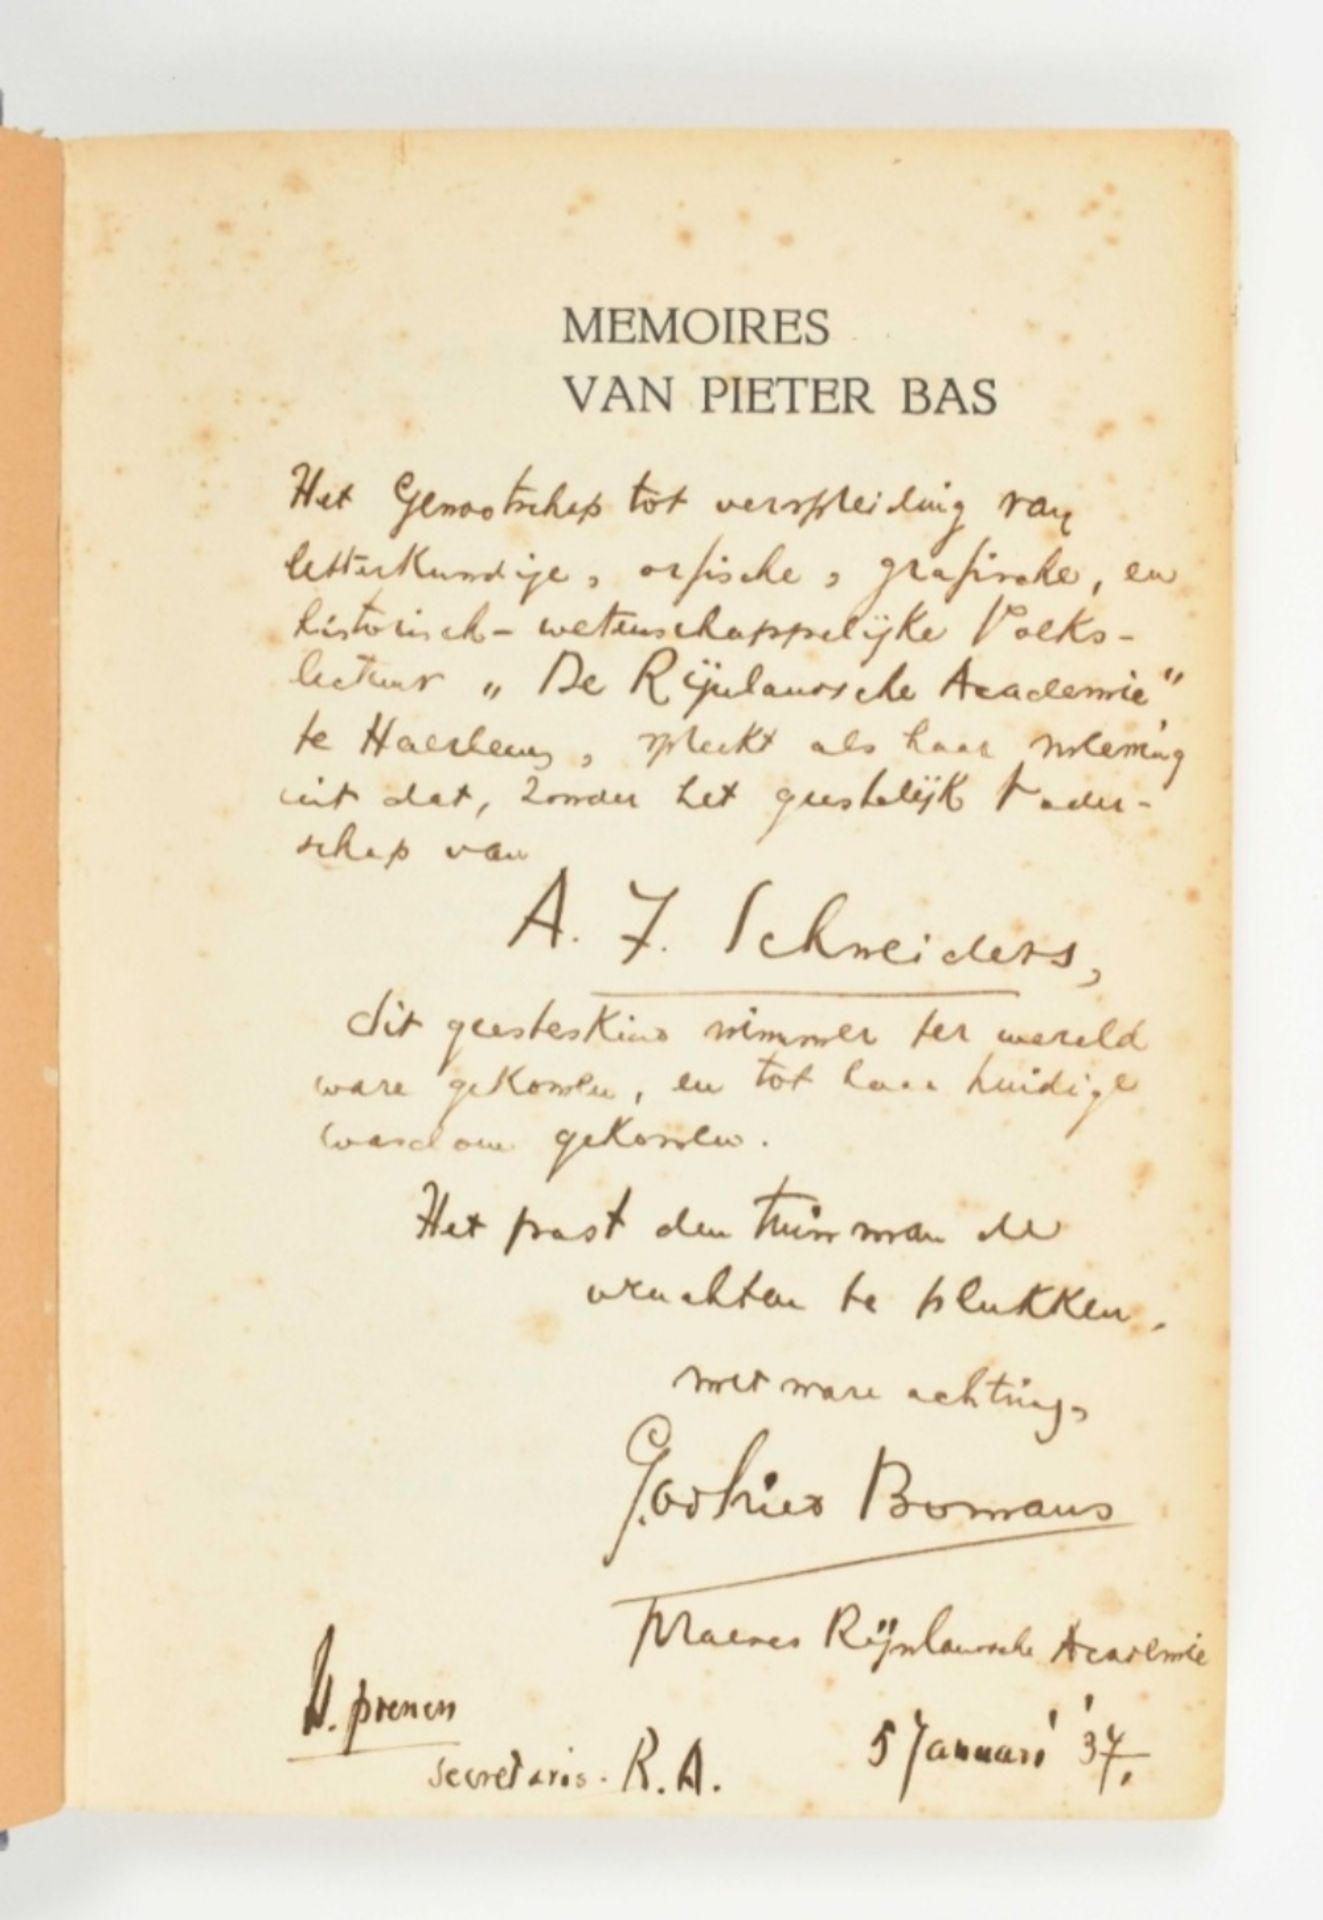 MEMOIRES
VAN PIETER BAS
Het Genootschap tot verspreiding van
letterkundige, orfische, grafische, en
historisch-wetenschappelijke Volks-
lectuur „De Rijnlandsche Academie"
te Haerlem, spreekt als haar mening
uit dat, zonder het geestelijk Vader-
schap van
A. J. Schneiders,
dit geesteskind nimmer ter wereld
ware gekomen, en tot haar huidige
wasdom gekomen.
Het past den tuinman de
vruchten te plukken.
met ware achting,
Godfried Bomans
praeses Rijnlandsche Academie
H. prenen
secretaris. R. A.
5 Januari '37.